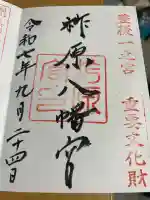 豊後一之宮
重要文化財
柞原八幡宮
令和七年九月二十四日